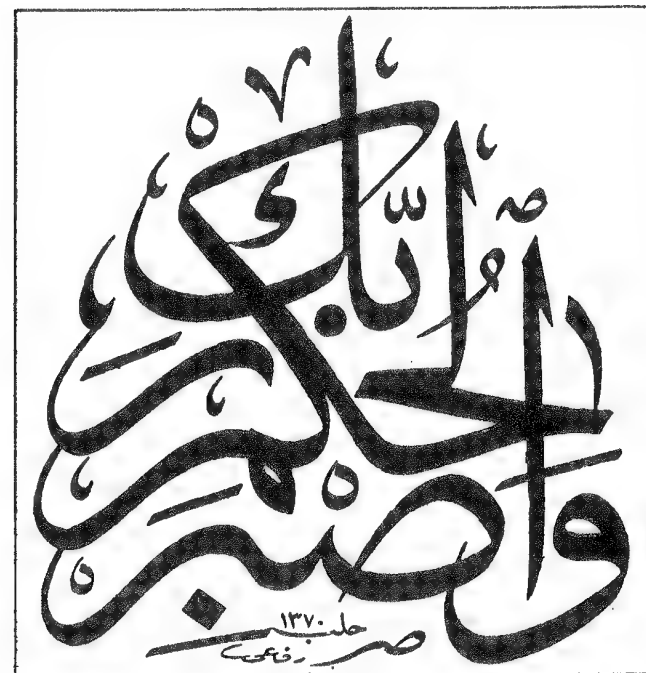 وَٱصْبِرْ لِحُكْمِ رَبِّكَ
حليم
١٣٧٠